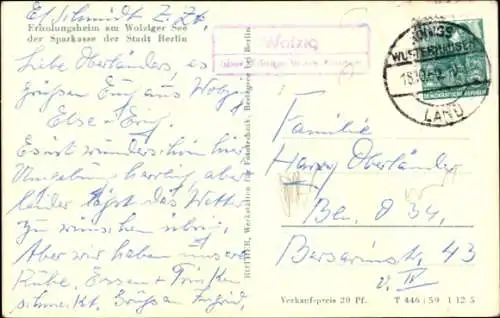 Elschmidt z. Zt.
Erholungsheim am Wolziger See
der Sparkasse der Stadt Berlin
Liebe Oberländer, es
grüßen Euch aus Wolzig
Else + Erich
Es ist wunderschön hier
Umgebung herrlich, aber
leider läßt das Wetter
zu wünschen übrig,
Aber wir haben unsere
Ruhe, Essen + Trinken
schmeckt. Grüßen
Wolzig
KÖNIGS
WUSTERHAUSEN
LAND
DEUTSCHE DEMOKRATISCHE REPUBLIK
Familie
Harry Oberländer
Bln. O 34,
Bersarinstr. 43
v. IV
Verkaufspreis 20 Pf. T 446/59 I 12 5